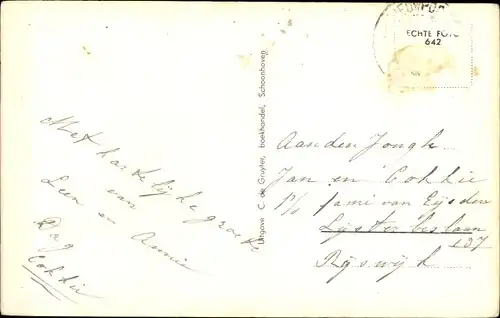 ECHTE FOTO
642
Met hartelijke groeten
van
Leen en Annie
Dag
Cokkie
Uitgave C. de Gruyter, boekhandel, Schoonhoven
Aan den Jongh
Jan en Cokkie
P/o fami van Eijsden
Lijsterbeslaan
137
Rijswijk